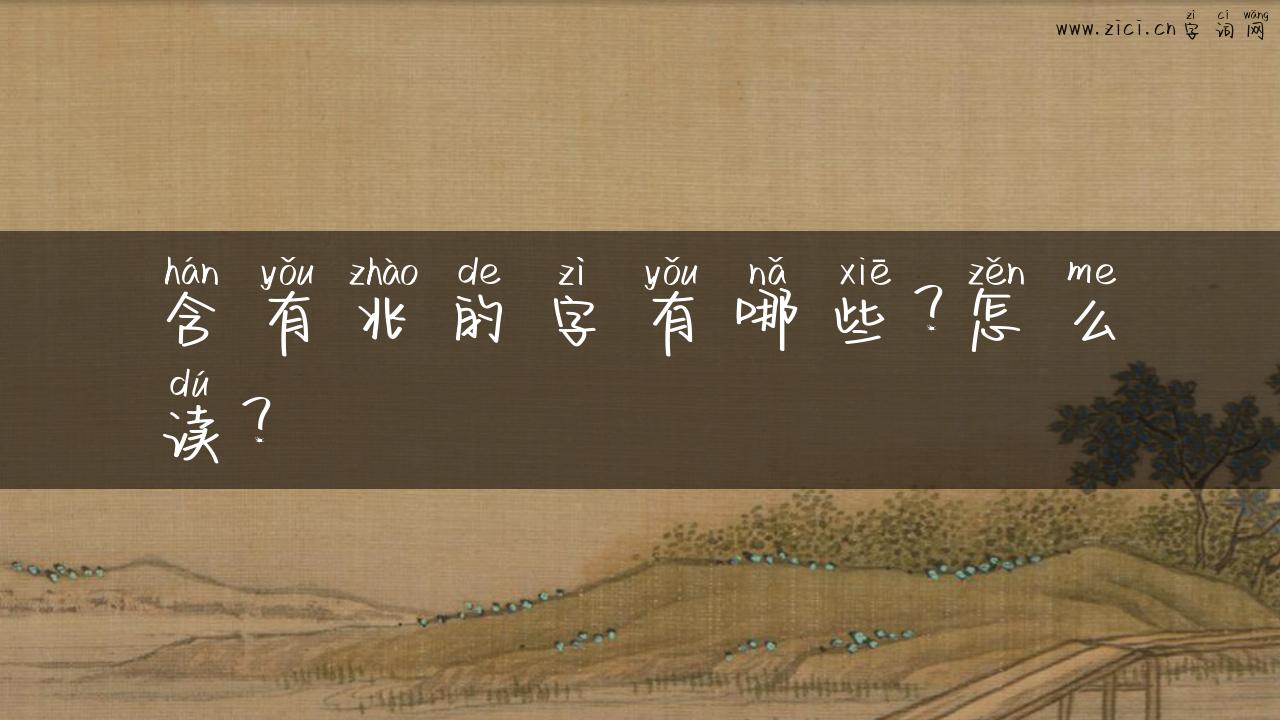 zì cí wǎng
www.zici.cn字词网
hán yǒu zhào de zì yǒu nǎ xiē zěn me
含有兆的字有哪些?怎么
dú
读?